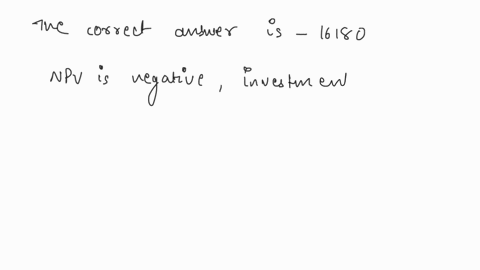 The correct answer is - 16180
NPV is negative, investmen